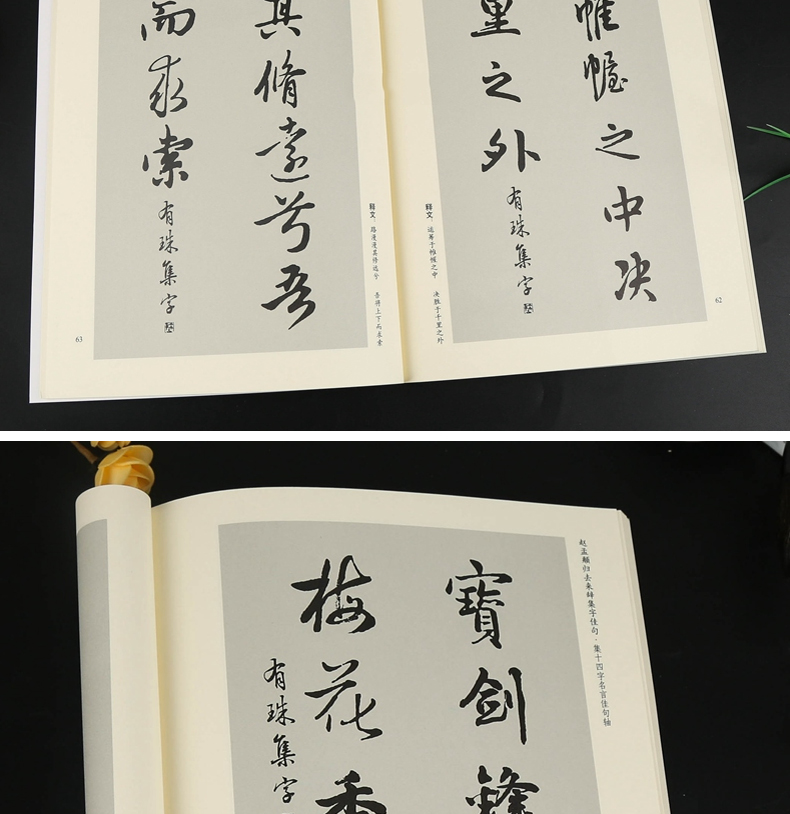 帷幄之中决
里之外
有珠集字
释文：运筹于帷幄之中 决胜于千里之外
62
其脩远兮吾
而求索
有珠集字
释文：路漫漫其修远兮 吾将上下而求索
63
赵孟頫归去来辞集字佳句·集十四字名言佳句轴
寶剑鋒
梅花香
有珠集字